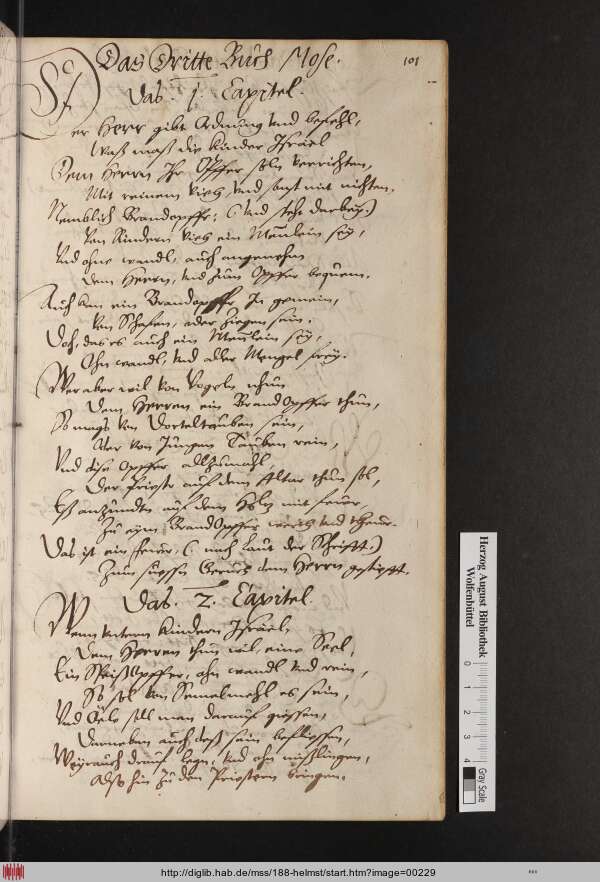 Das Dritte Buch Mose.
101
Das. 1. Capitel.
er Herr gibt Ordnung vnd befehl,
Waß maß die Kinder Israel
Dem Herrn Ihr Opffer soln verrichten,
Mit reinem Vieh, vnd sonst mit nichten,
Nemblich Brandopffer, (vnd steht darbey)
Von Rindern Vieh ein Menlein sey,
Vnd ohne wandl, auch angenehm
Dem Herrn, vnd zum Opffer bequem.
Auch kan ein Brandopffer In gemein,
Von Schafen, oder Ziegen sein.
Doch, das es auch ein Menlein sey,
Ohn wandl, vnd aller Mengel frey.
Wer aber wil von Vogeln nhun
Dem Herren ein BrandOpffer thun,
So mags von Dorteltauben sein,
Oder von Jungen Tauben rein,
Vnd dise Opffer allzumahl,
Der Priester auf dem Altar thun sol,
anzunden auf dem Holtz mit feuer,
Zu eym BrandOpffer werth vnd theuer.
Das ist ein feuer, (nach laut der Schrifft)
Zum suessen Geruch dem Herrn gestifft.
Das. 2. Capitel.
Wenn vntern Kindern Israel,
Dem Herren thun wil eine Seel,
Ein SpeißOpffer, ohn wandl vnd rein,
So sol von Semelmehl es sein,
Vnd Oele soll man darauf giessen,
Darneben auch deß sein beflissen,
Weyrauch drauf legn, vnd ohn mißlingen,
Also hin zu den Priestern bringen.
Herzog August Bibliothek
Wolfenbüttel
0 1 2 3 4
Gray Scale
http://diglib.hab.de/mss/188-helmst/start.htm?image=00229